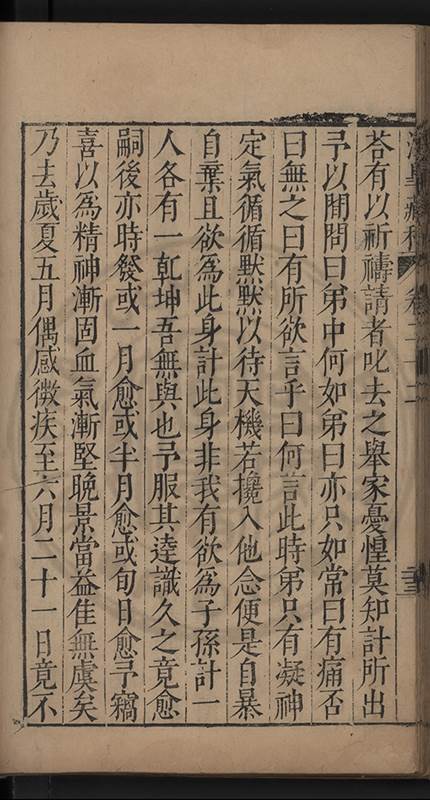 荅有以祈禱請者叱去之舉家憂惶莫知計所出
予以間問曰弟中何如弟曰亦只如常曰有痛否
曰無之曰有所欲言乎曰何言此時弟只有凝神
定氣循循默默以待天機若攙入他念便是自暴
自棄且欲為此身計此身非我有欲為子孫計一
人各有一乾坤吾無與也予服其達識久之竟愈
嗣後亦時發或一月愈或半月愈或旬日愈予竊
喜以為精神漸固血氣漸堅晚景當益佳無虞矣
乃去歲夏五月偶感微疾至六月二十一日竟不
卷二十二